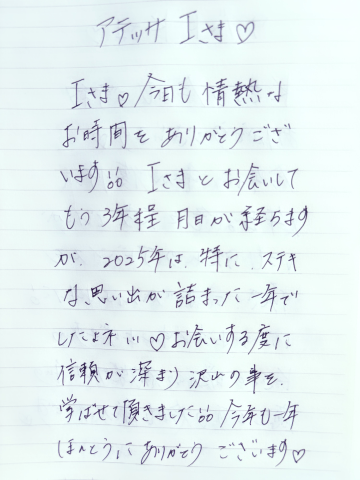 アテッサ Iさま♡
Iさま♡今日も情熱な
お時間をありがとうござ
います Iさまとお会いして
もう3年程月日が経ちます
が、2025年は、特に、ステキ
な思い出が詰まった一年で
したよネ!!! ♡お会いする度に
信頼が深まり沢山の事を、
学ばせて頂きました 今年も一年
ほんとうにありがとうございます♡